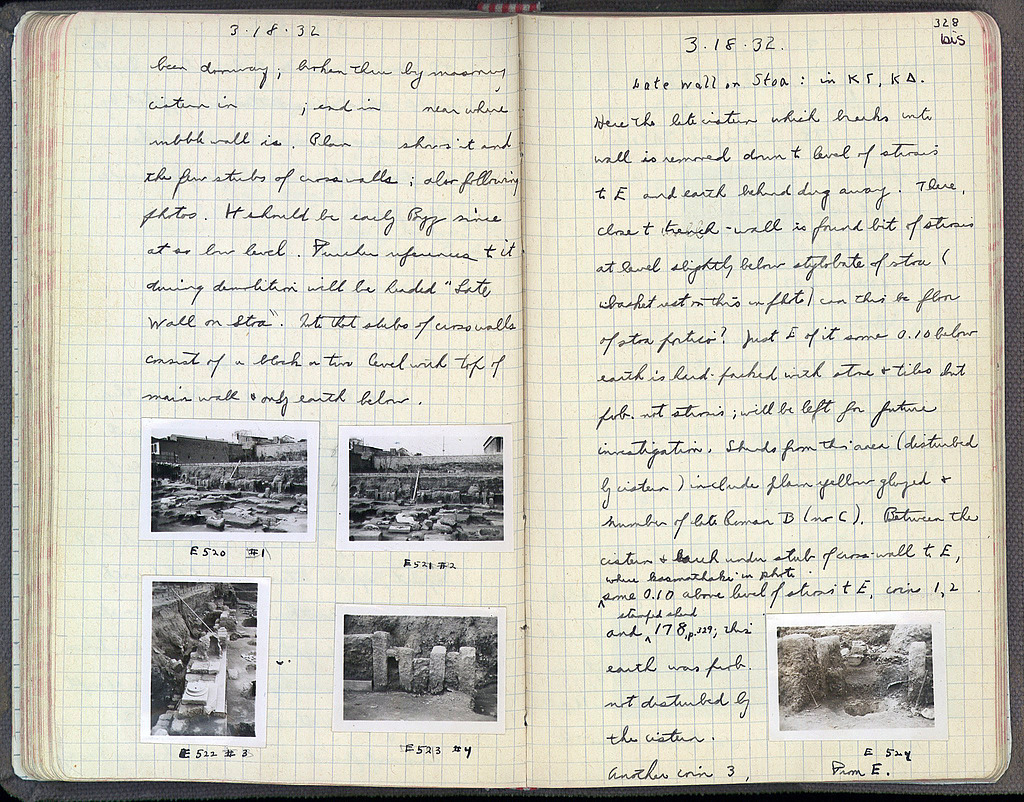 3·18·32
been doorway; broken thru by masonry
cistern in ; end in near where
rubble wall is. Plan shows it and
the few stubs of cross walls; also following
photos. It should be early Byz since
at so low level. Further references to it
during demolition will be headed "Late
Wall on Stoa". Note that stubs of cross walls
consist of a block or two level with top of
main wall & only earth below.
E 520 #1
E 521 #2
E 522 #3
E 523 #4
328
bis
3·18·32.
Late Wall on Stoa: in ΚΓ, ΚΔ.
Here the late cistern which breaks into
wall is removed down to level of strosis
to E and earth behind dug away. There,
close to trench-wall is found bit of strosis
at level slightly below stylobate of stoa (
basket rest on this in photo) can this be floor
of stoa portico? Just E of it some 0.10 below
earth is hard-packed with stone & tiles but
prob. not strosis; will be left for future
investigation. Sherds from this area (disturbed
by cistern) include plain yellow glazed &
number of late Roman B (no C). Between the
cistern & earth under stub of cross-wall to E,
where in photo
some 0.10 above level of strosis to E, coins 1, 2
stamped sherd
and 178, p. 329; this
earth was prob.
not disturbed by
the cistern.
E 524
From E.
Another coin 3,